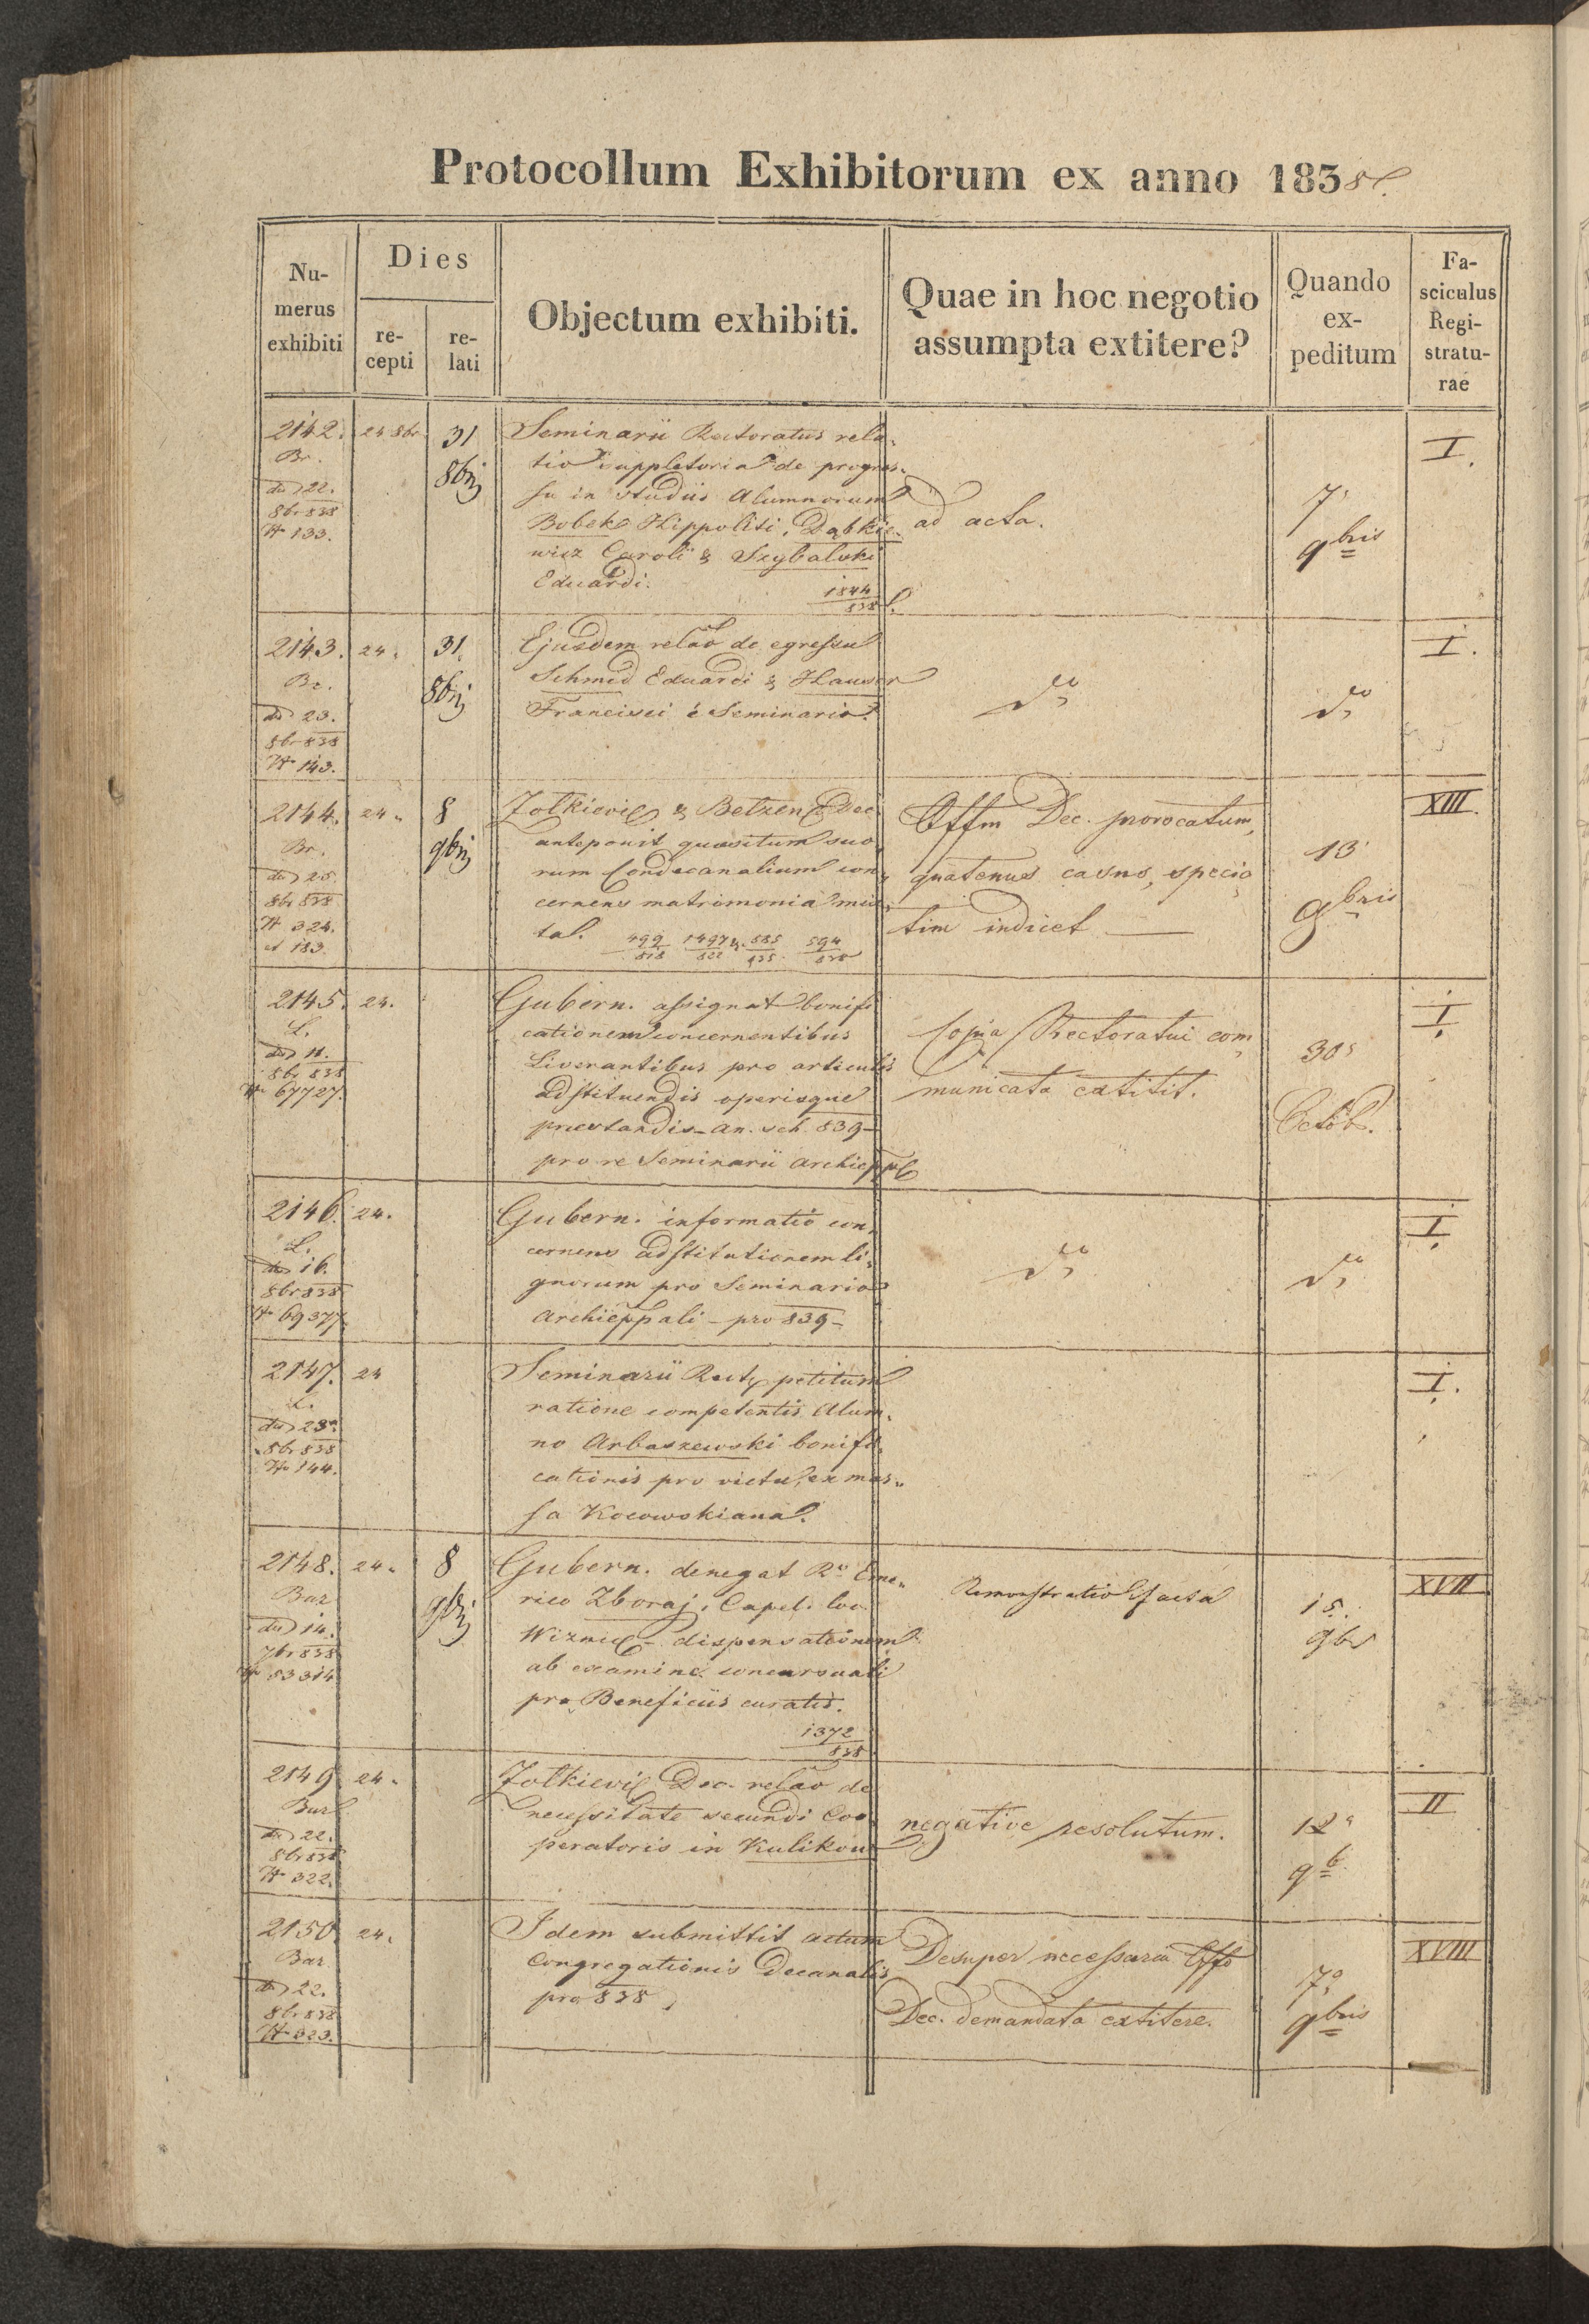 Protocollum Exhibitorum ex anno 1838
Nu-
merus
exhibiti
Dies
re-
cepti
re-
lati
Objectum exhibiti.
Quae in hoc negotio
assumpta extitere?
Quando
ex-
peditum
Fa-
sciculus
Regi-
stratu-
rae
2142.
Br.
dto 22.
8br 838
N 133.
24 8br.
31
8bris
Seminarii Rectoratus rela-
tio suppletoria de progres-
su in studiis Alumnorum
Bobek Hippoliti, Dąbkie-
wicz Caroli & Szybalski
Eduardi.
1844
838
ad acta.
7
9bris
I.
2143.
Br.
dto 23.
8br 838
N 143.
24.
31.
8bris
Ejusdem relao de egressu
Schmid Eduardi & Hauser
Francisci è Seminario.
do
do
I.
2144.
Br.
dto 25.
8br 838
N 324.
et 183.
24.
8
9bris
Zolkievi & Belzen Dec.
anteponit quaesitum suo-
rum Condecanalium con-
cernens matrimonia mix-
ta.
499
818
1497
822
&
585
835
594
838
Offm Dec. provocatum,
quatenus casus, specia-
tim indicet —
13
9bris
XIII.
2145.
L.
dto 11.
8br 838
N 67727.
24.
Gubern. assignat bonifi-
cationem concernentibus
Liverantibus pro articulis
adstituendis operisque
praestandis an. sch. 839
pro re Seminarii archiepp
Copia Rectoratui com-
municata extitit.
30
Octob.
I.
2146.
L.
dto 16.
8br 838
N 69377.
24.
Gubern. informatio con-
cernens adstitutionem li-
gnorum pro Seminario
archieppali – pro 839 –
do
do
I.
2147.
L.
dto 23.
8br 838
N 144.
24
Seminarii Rect petitum
ratione competentis Alum-
no Arbaszewski bonifi-
cationis pro victu, ex mas-
sa Kocowskiana.
I.
2148.
Bar
dto 14.
7br 838
N 53314
24.
8
9bris
Gubern. denegat Ro Eme-
rico Zboraj, Capel. loc.
Wizni – dispensationem
ab examine concursuali
pro Beneficiis curatis.
1372
838
Remonstratio facta
15.
9br
XVII
2149
Bar
dto 22.
8br 838
N 322.
24.
Zolkievi Dec. relao de
necessitate secundi Coo-
peratoris in Kulikow
negative resolutum.
12
9b
II
2150
Bar
dto 22.
8br 838
N 323.
24.
Idem submittit actum
Congregationis Decanalis
pro 838,
Desuper necessaria Offo
Dec. demandata extitere.
7
9bris
XVIII